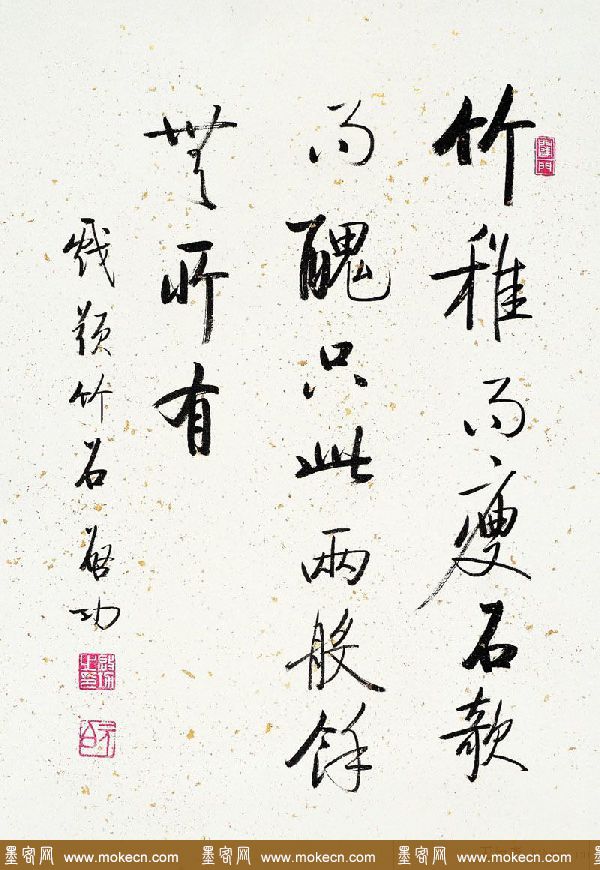 竹稚而瘦石欹
而醜只此兩般餘
無所有
戲題竹石啟功
啟功之印
元白
墨客网 www.mokecn.com 墨客网 www.mokecn.com 墨客网 www.mokecn.com